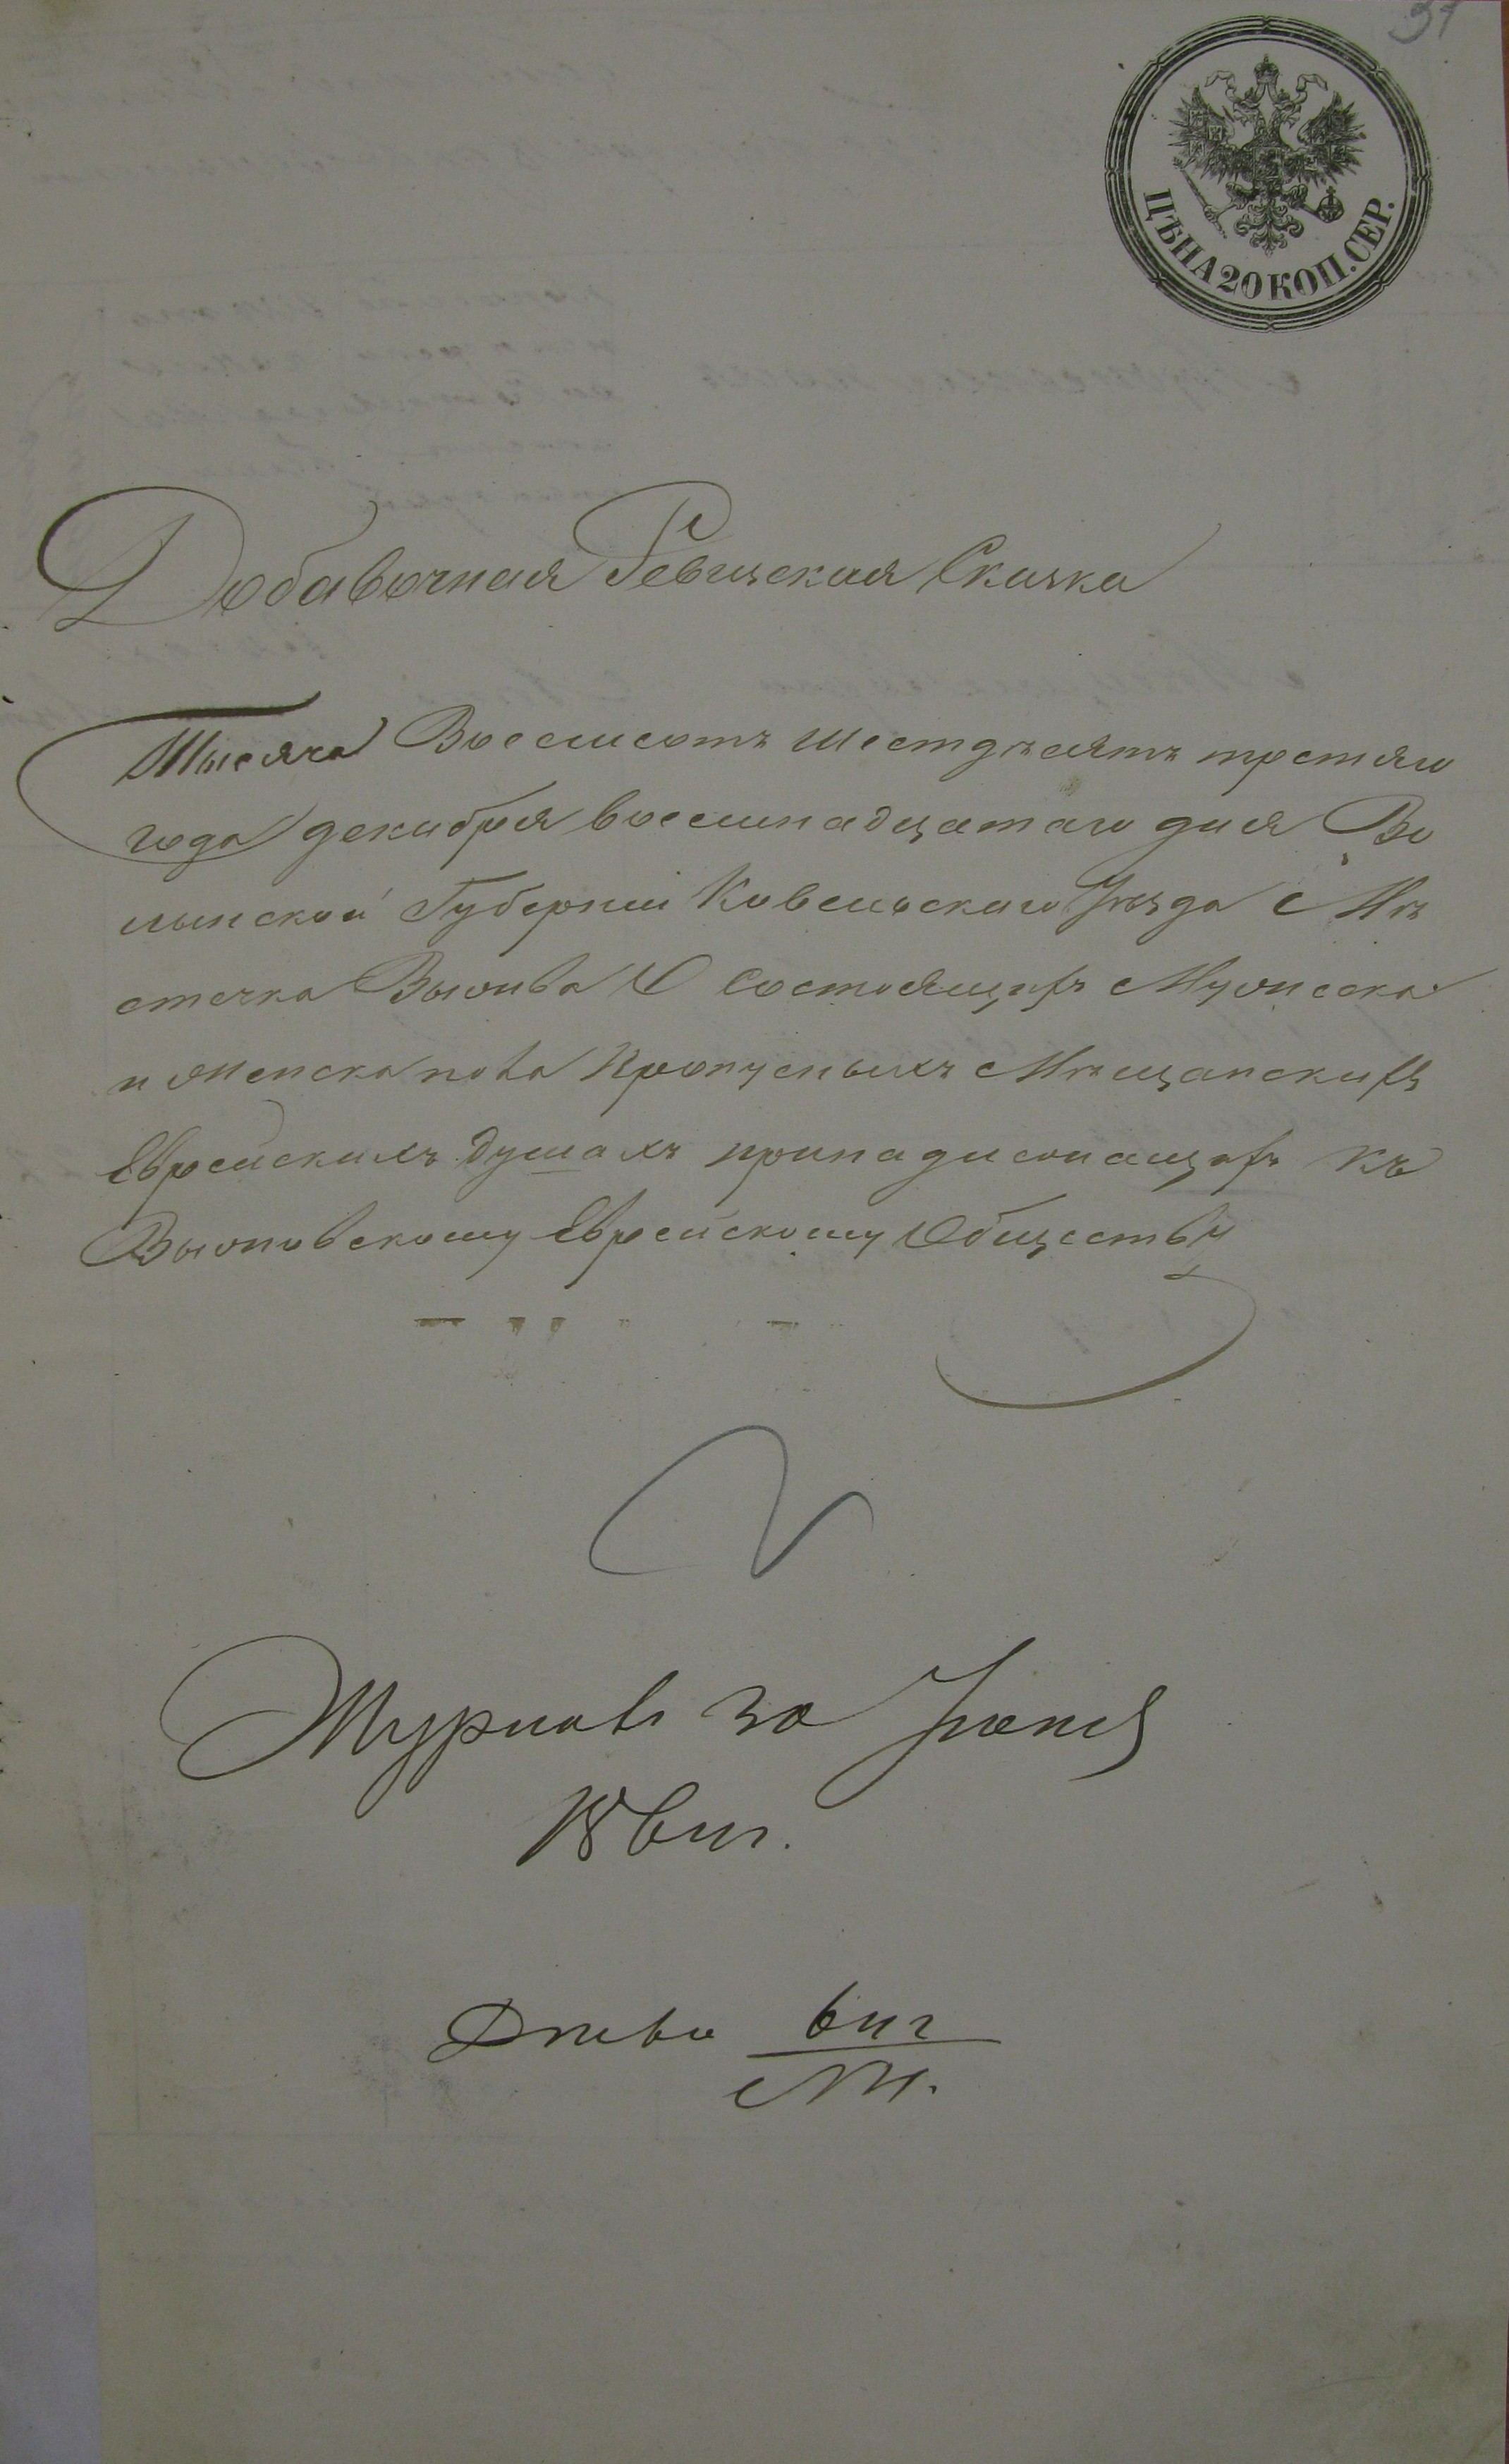 31
ЦѢНА 20 КОП. СЕР.
Добавочная Ревизская Сказка
Тысяча Восемсотъ шестдесятъ третяго
года декабря восемнадцатаго дня Во
лынской Губерніи Ковельскаго Уѣзда Мѣ
стечка Выжва О состоящихъ Мужеска
и женска пола Пропусныхъ Мѣщанскихъ
Еврейскихъ душахъ принадлежащихъ къ
Выжовскому Еврейскому Обществу
Журналъ 30